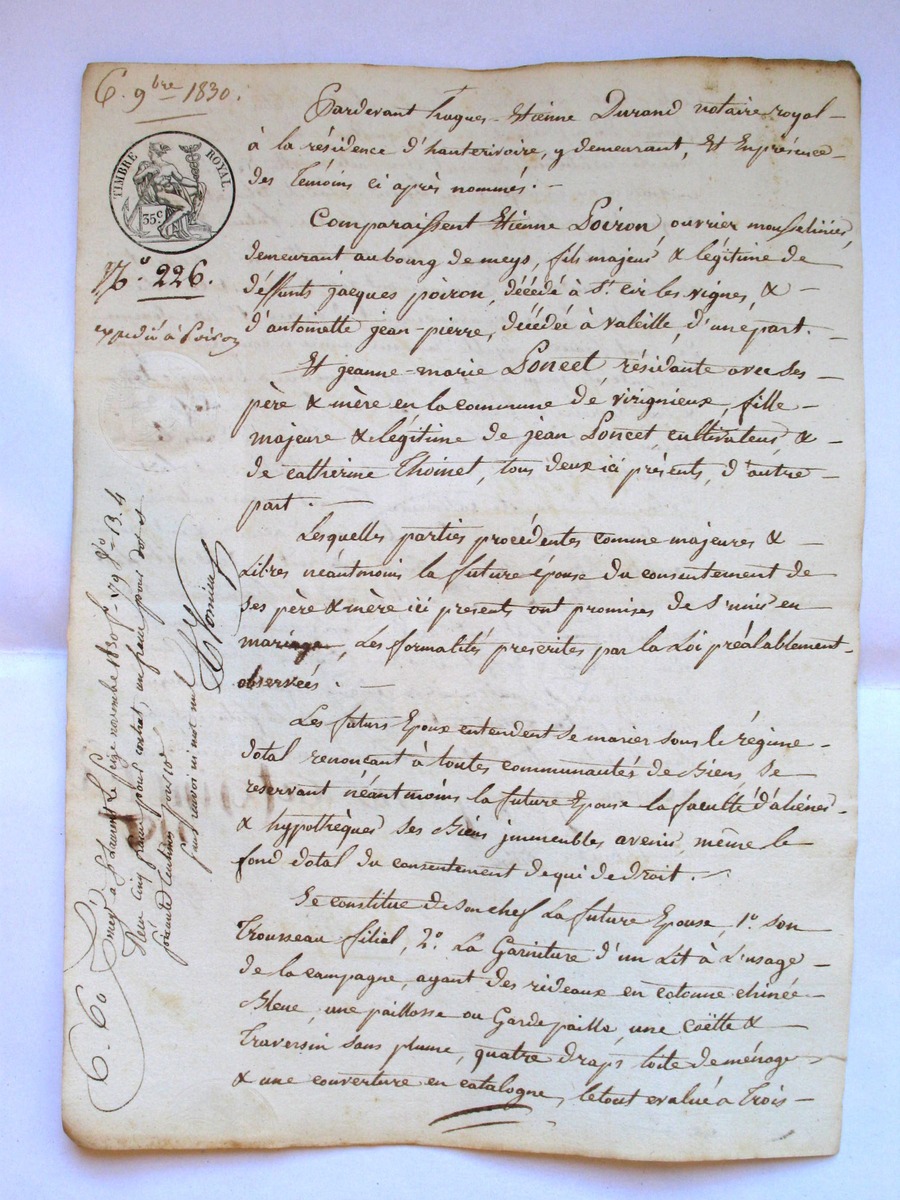 6. 9bre 1830.
TIMBRE ROYAL
35c
N° 226.
expédié à Poiron
Pardevant Hugues-Etienne Durand notaire royal
à la résidence d'hauterivoire, y demeurant, Et En présence
des Témoins ci après nommés.
Comparaissent Etienne Poiron, ouvrier mousselinier,
demeurant au bourg de meys, fils majeur & légitime de
déffunts jacques poiron, décédé à St. cir les vignes, &
d'antoinette jean-pierre, décédée à valeille, d'une part.
Et jeanne-marie Poncet résidante avec ses
père & mère en la commune de virignieux, fille
majeure & légitime de jean Poncet cultivateur, &
de catherine Thoinet, tous deux ici présents, d'autre
part.
Lesquelles parties procédentes comme majeures &
Libres néantmoins la future épouse du consentement de
ses père & mère ici présents, ont promises de s'unir en
mariage, Les formalités prescrites par la Loi préalablement
observées.
Les futurs Epoux entendent se marier sous le régime
dotal renonçant à toutes communautés de Biens se
reservant néantmoins la future Epouse la faculté d'aliéner
& hypothèquer ses Biens immeubles avenir, même le
fond dotal du consentement de qui de droit.
Se constitue de son chef La future Epouse, 1° son
Trousseau filial, 2° La Garniture d'un Lit à L'usage
de la campagne, ayant des rideaux en cotonne chinée
Bleue, une paillasse ou Garde paille, une coëtte &
Traversin sans plume, quatre draps toile de ménage
& une couverture en catalogne, le tout evalué à Trois
6. 60
Enregé à St Laurent le seize novembre 1830 f° 79 Vo C. 3. 4
Reçu cinq francs pour contrat, un franc pour dot et
soixante centimes pour 10e
sans renvoi ni mot nul